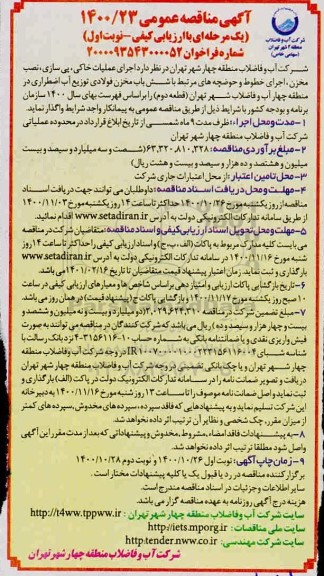 آگهی مناقصه عمومی ۱۴۰۰/۲۳
(یک مرحله ای با ارزیابی کیفی – نوبت اول)
شماره فراخوان ۲۰۰۰۰۹۳۵۴۳۰۰۰۰۵۲
شرکت آب و فاضلاب
منطقه ۴ شهر تهران
(سهامی خاص)
شرکت آب و فاضلاب منطقه چهار شهر تهران در نظر دارد اجرای عملیات خاکی، پی سازی، نصب
مخزن، اجرای خطوط و حوضچه های مرتبط با شش باب مخزن فولادی توزیع آب اضطراری در
منطقه چهار آب و فاضلاب شهر تهران (قطعه دوم) را بر اساس فهرست بهای سال ۱۴۰۰ سازمان
برنامه و بودجه کشور با شرایط ذیل از طریق مناقصه عمومی به پیمانکار واجد شرایط واگذار نماید.
۱- مدت و محل اجراء: ظرف مدت ۹ ماه شمسی از تاریخ ابلاغ قرارداد در محدوده عملیاتی
شرکت آب و فاضلاب منطقه چهار شهر تهران
۲- مبلغ برآوردی مناقصه: ۶۳,۳۲۰,۸۱۰,۳۲۸ (شصت و سه میلیارد و سیصد و بیست
میلیون و هشتصد و ده هزار و سیصد و بیست و هشت ریال)
۳- محل تامین اعتبار: از محل اعتبارات جاری شرکت
۴- مهلت و محل دریافت اسناد مناقصه: داوطلبان می توانند جهت دریافت اسناد
مناقصه از روز یکشنبه مورخ ۱۴۰۰/۱۰/۲۶ حداکثر تا ساعت ۱۴ روز یکشنبه مورخ ۱۴۰۰/۱۱/۰۳
از طریق سامانه تدارکات الکترونیکی دولت به آدرس www.setadiran.ir اقدام نمائید.
۵- مهلت و محل تحویل اسناد ارزیابی کیفی و اسناد مناقصه: متقاضیان شرکت در مناقصه
می بایست کلیه مدارک مربوط به پاکات (الف، ب، ج) و اسناد ارزیابی کیفی را حداکثر تا ساعت ۱۴ روز
شنبه مورخ ۱۴۰۰/۱۱/۱۶ در سامانه تدارکات الکترونیکی دولت به آدرس www.setadiran.ir
بارگذاری و ثبت نماید. زمان اعتبار پیشنهاد قیمت متقاضیان تا تاریخ ۱۴۰۱/۰۲/۱۶ می باشد.
۶- تاریخ بازگشایی پاکات ارزیابی و امتیاز دهی بر اساس شاخص ها و معیارهای ارزیابی کیفی در ساعت
۱۰ صبح روز یکشنبه مورخ ۱۴۰۰/۱۱/۱۷ و بازگشایی پاکات (پیشنهاد قیمت) در همان روز می باشد.
۷- مبلغ تضمین شرکت در مناقصه ۲,۰۲۹,۶۲۴,۳۱۰ (دو میلیارد و بیست و نه میلیون و ششصد و
بیست و چهار هزار و سیصد و ده) ریال می باشد که شرکت کنندگان در مناقصه می توانند به صورت
فیش واریزی نقدی و یا ضمانتنامه بانکی به شماره حساب
شناسه شبای
چهار شهر تهران و یا چک بانکی تضمینی در وجه شرکت آب و فاضلاب منطقه چهار شهر تهران
دریافت و تصویر ضمانت نامه را در سامانه تدارکات الکترونیک دولت در پاکت (الف) بارگذاری و
ثبت نماید و اصل ضمانت نامه موصوف را تا ساعت ۱۳ روز شنبه مورخ ۱۴۰۰/۱۱/۱۶ به دبیرخانه
این شرکت تسلیم نماید و به پیشنهادهایی که فاقد سپرده، سپرده های مخدوش، سپرده های کمتر
از میزان مقرر، چک شخصی و نظایر آن ترتیب اثر داده نخواهد شد.
۸- به پیشنهادات فاقد امضاء، مشروط، مخدوش و پیشنهاداتی که بعد از مدت مقرر این آگهی
واصل شود مطلقا ترتیب اثر داده نخواهد شد.
۹- زمان چاپ آگهی: نوبت اول ۱۴۰۰/۱۰/۲۶ و نوبت دوم ۱۴۰۰/۱۰/۲۸
برگزار کننده مناقصه در رد یا قبول یک یا کلیه پیشنهادات مختار است.
سایر اطلاعات و جزئیات در اسناد مناقصه مندرج است.
هزینه درج آگهی روزنامه به عهده مناقصه گزار می باشد.
سایت شرکت آب و فاضلاب منطقه چهار شهر تهران: http://t4ww.tppww.ir
سایت ملی مناقصات: http://iets.mporg.ir
سایت شرکت مهندسی: http:tender.nww.co.ir
شرکت آب و فاضلاب منطقه چهار شهر تهران